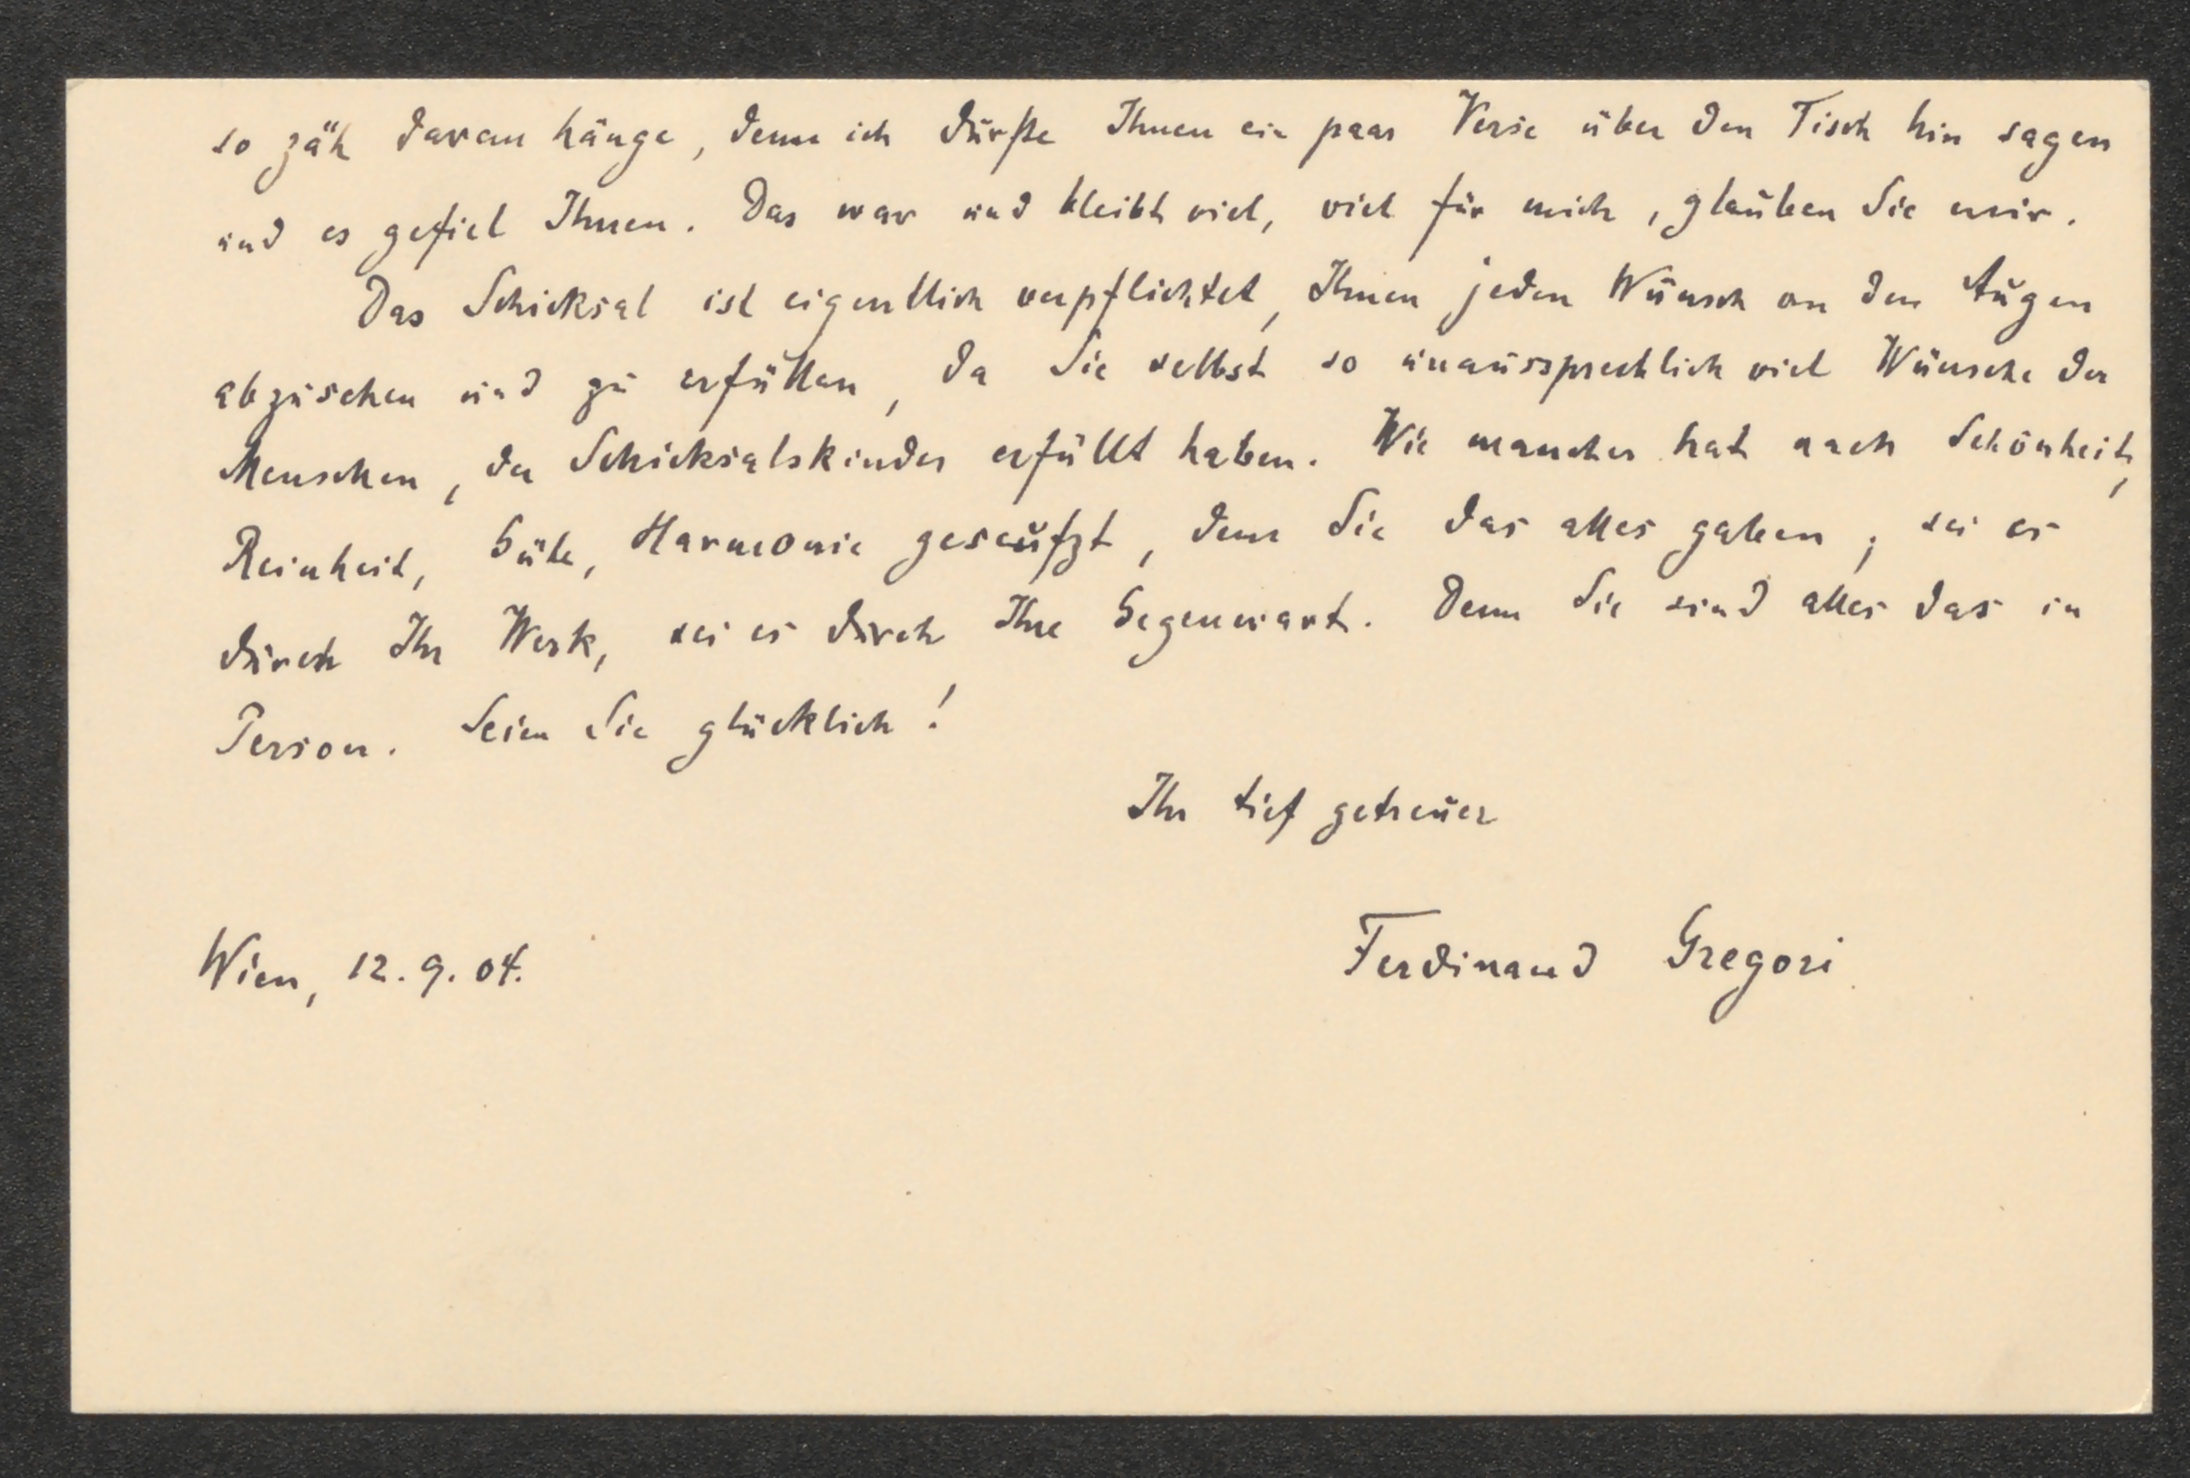 so zäh daran hänge, denn ich durfte Ihnen ein paar Verse über den Tisch hin sagen
und es gefiel Ihnen. Das war und bleibt viel, viel für mich, glauben Sie mir.
Das Schicksal ist eigentlich verpflichtet, Ihnen jeden Wunsch an den Augen
abzusehen und zu erfüllen, da Sie selbst so unaussprechlich viel Wünsche der
Menschen, der Schicksalskinder erfüllt haben. Wie mancher hat nach Schönheit,
Reinheit, Güte, Harmonie geseufzt, dem Sie das alles gaben, sei es
durch Ihr Werk, sei es durch Ihre Gegenwart. Denn Sie sind alles das in
Person. Seien Sie glücklich!
Ihr tief getreuer
Ferdinand Gregori
Wien, 12. 9. 04.